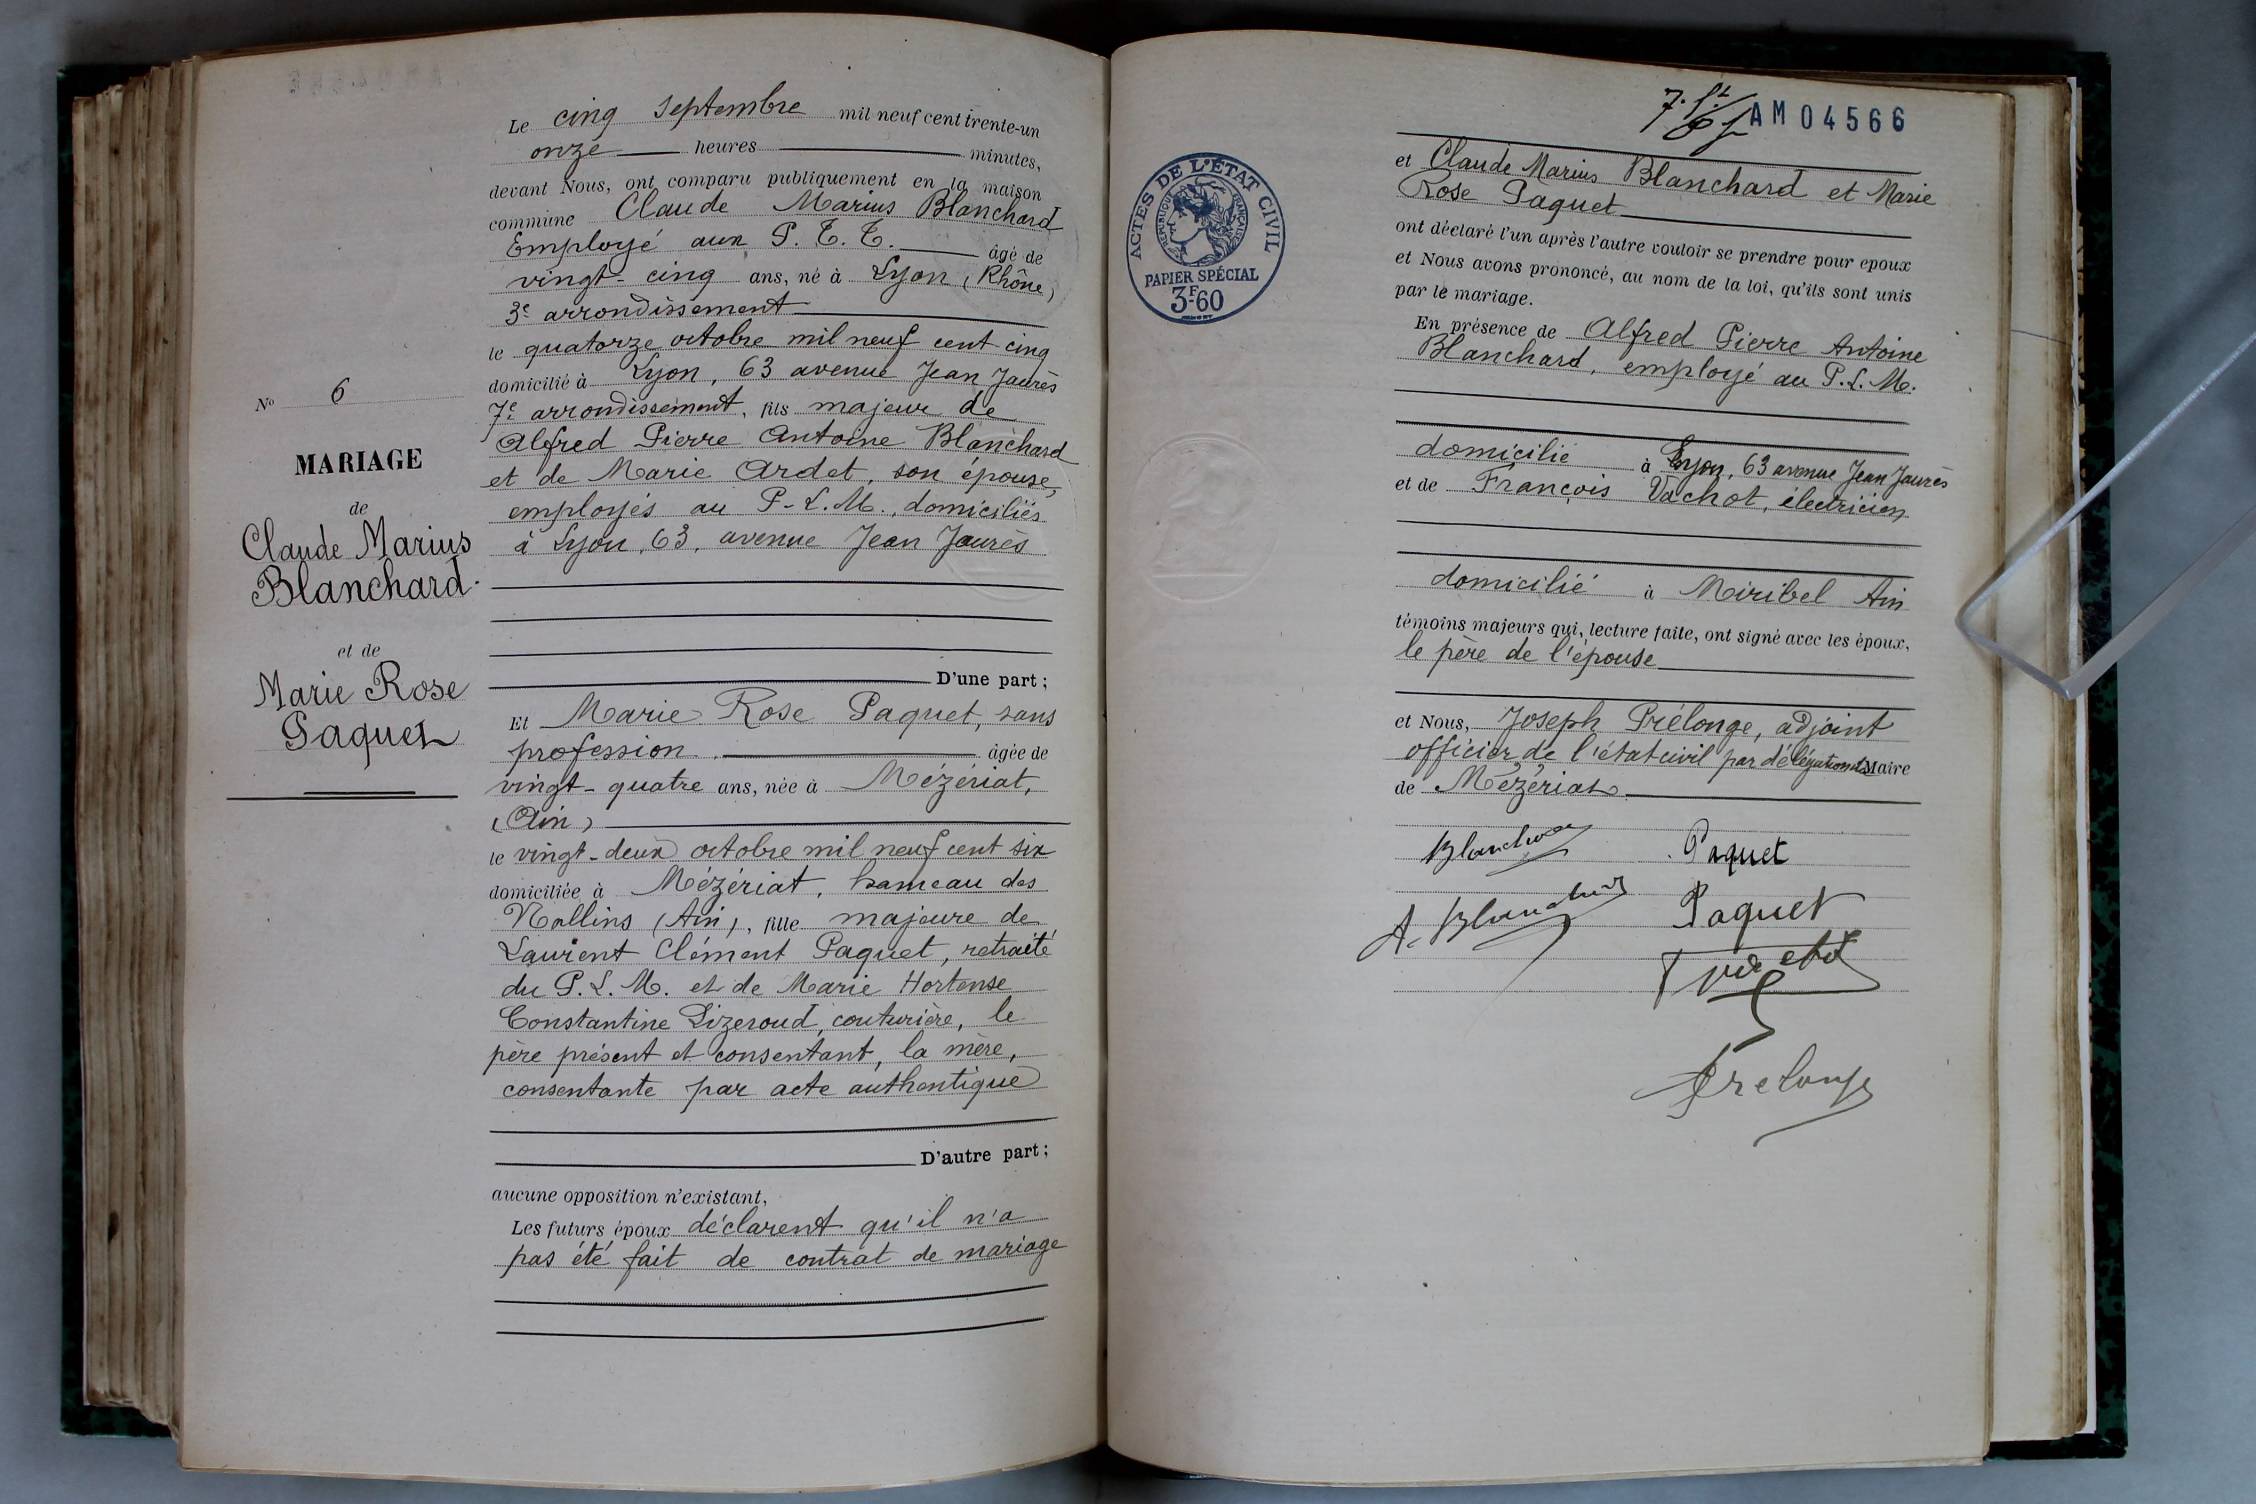 Le cinq septembre mil neuf cent trente-un
onze heures minutes,
devant Nous, ont comparu publiquement en la maison
commune Claude Marius Blanchard
Employé aux P. T. T. âgé de
vingt-cinq ans, né à Lyon (Rhône)
3e arrondissement
le quatorze octobre mil neuf cent cinq
domicilié à Lyon, 63 avenue Jean Jaurès
7e arrondissement, fils majeur de
Alfred Pierre Antoine Blanchard
et de Marie Ardet, son épouse,
employés au P-L.M., domiciliés
à Lyon, 63, avenue Jean Jaurès
D'une part ;
No 6
MARIAGE
de
Claude Marius
Blanchard.
et de
Marie Rose
Paquet
Et Marie Rose Paquet, sans
profession. âgée de
vingt-quatre ans, née à Mézériat,
(Ain)
le vingt-deux octobre mil neuf cent six
domiciliée à Mézériat, hameau des
(Ain), fille majeure de
Laurent Clément Paquet, retraité
du P.L.M. et de Marie Hortense
Constantine Lizeroud, couturière, le
père présent et consentant, la mère,
consentante par acte authentique
D'autre part ;
aucune opposition n'existant,
Les futurs époux déclarent qu'il n'a
pas été fait de contrat de mariage
AM 04566
ACTES DE L'ÉTAT CIVIL
RÉPUBLIQUE FRANÇAISE
PAPIER SPÉCIAL
3F60
et Claude Marius Blanchard et Marie
Rose Paquet
ont déclaré l'un après l'autre vouloir se prendre pour époux
et Nous avons prononcé, au nom de la loi, qu'ils sont unis
par le mariage.
En présence de Alfred Pierre Antoine
Blanchard, employé au P.L.M.
domicilié à Lyon, 63 avenue Jean Jaurès
et de François Vachot, électricien
domicilié à Miribel Ain
témoins majeurs qui, lecture faite, ont signé avec les époux,
le père de l'épouse
et Nous, Joseph Prélonge, adjoint
officier de l'état civil par délégation du Maire
de Mézériat
Blanchard Paquet
A. Blanchard Paquet
Prelonge